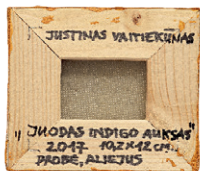 JUSTINAS VAITIEKŪNAS
"JUODAS INDIGO AUKSAS"
2017 10,2x12 cm.
DROBĖ, ALIEJUS